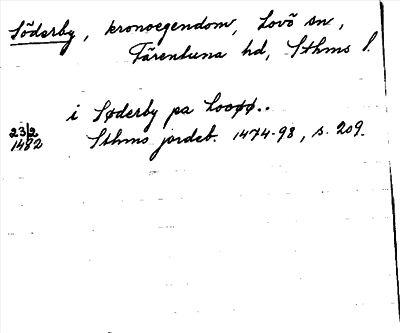 Söderby, kronoegendom, Lovö sn,
Färentuna hd, Sthms l.
i Søderby pa Looøø..
23/2
1482
Sthms jordeb. 1474-98, s. 209.